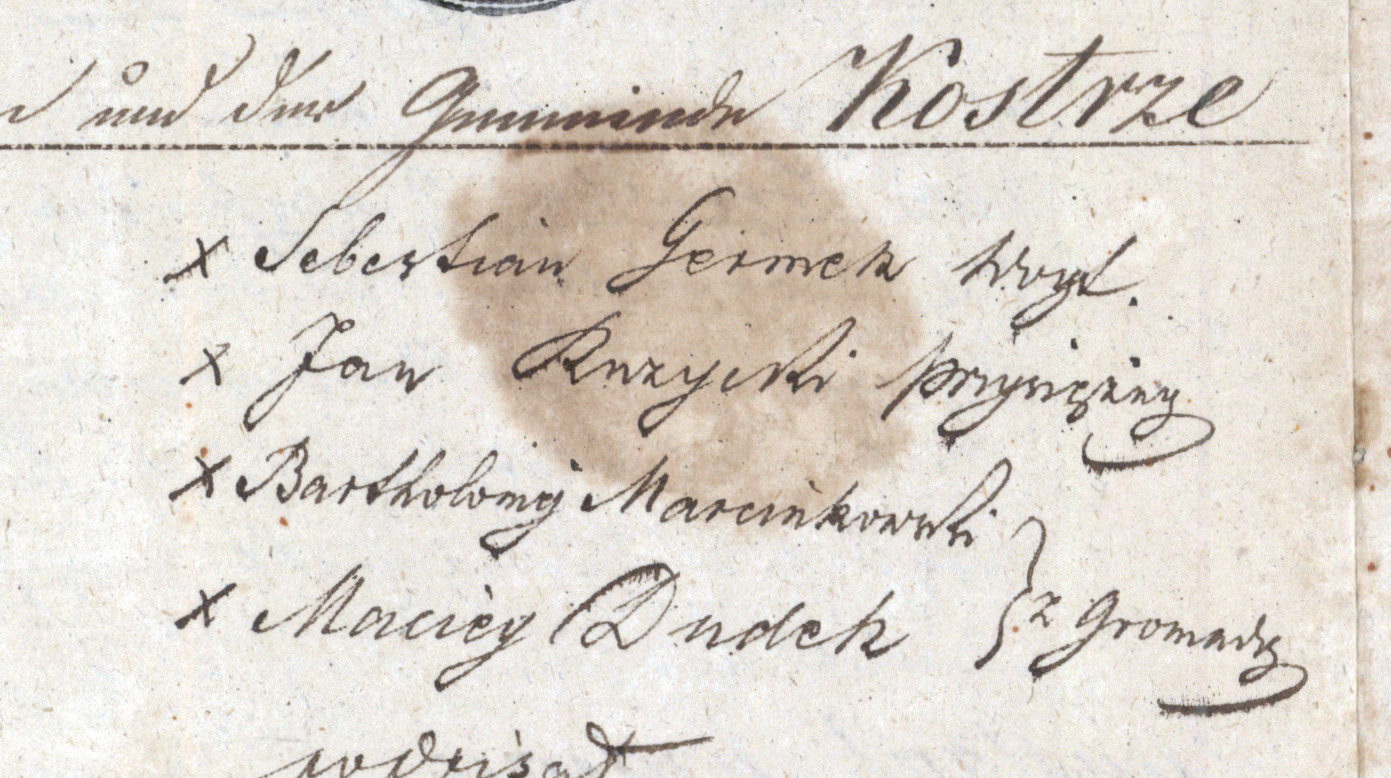 und der Gemeinde Kostrze
x Sebestian Germek Woyt.
x Jan Ruzycki przysiężny
x Bartholomy Marcinkowski
x Maciey Dudek } z Gromady
podpisał